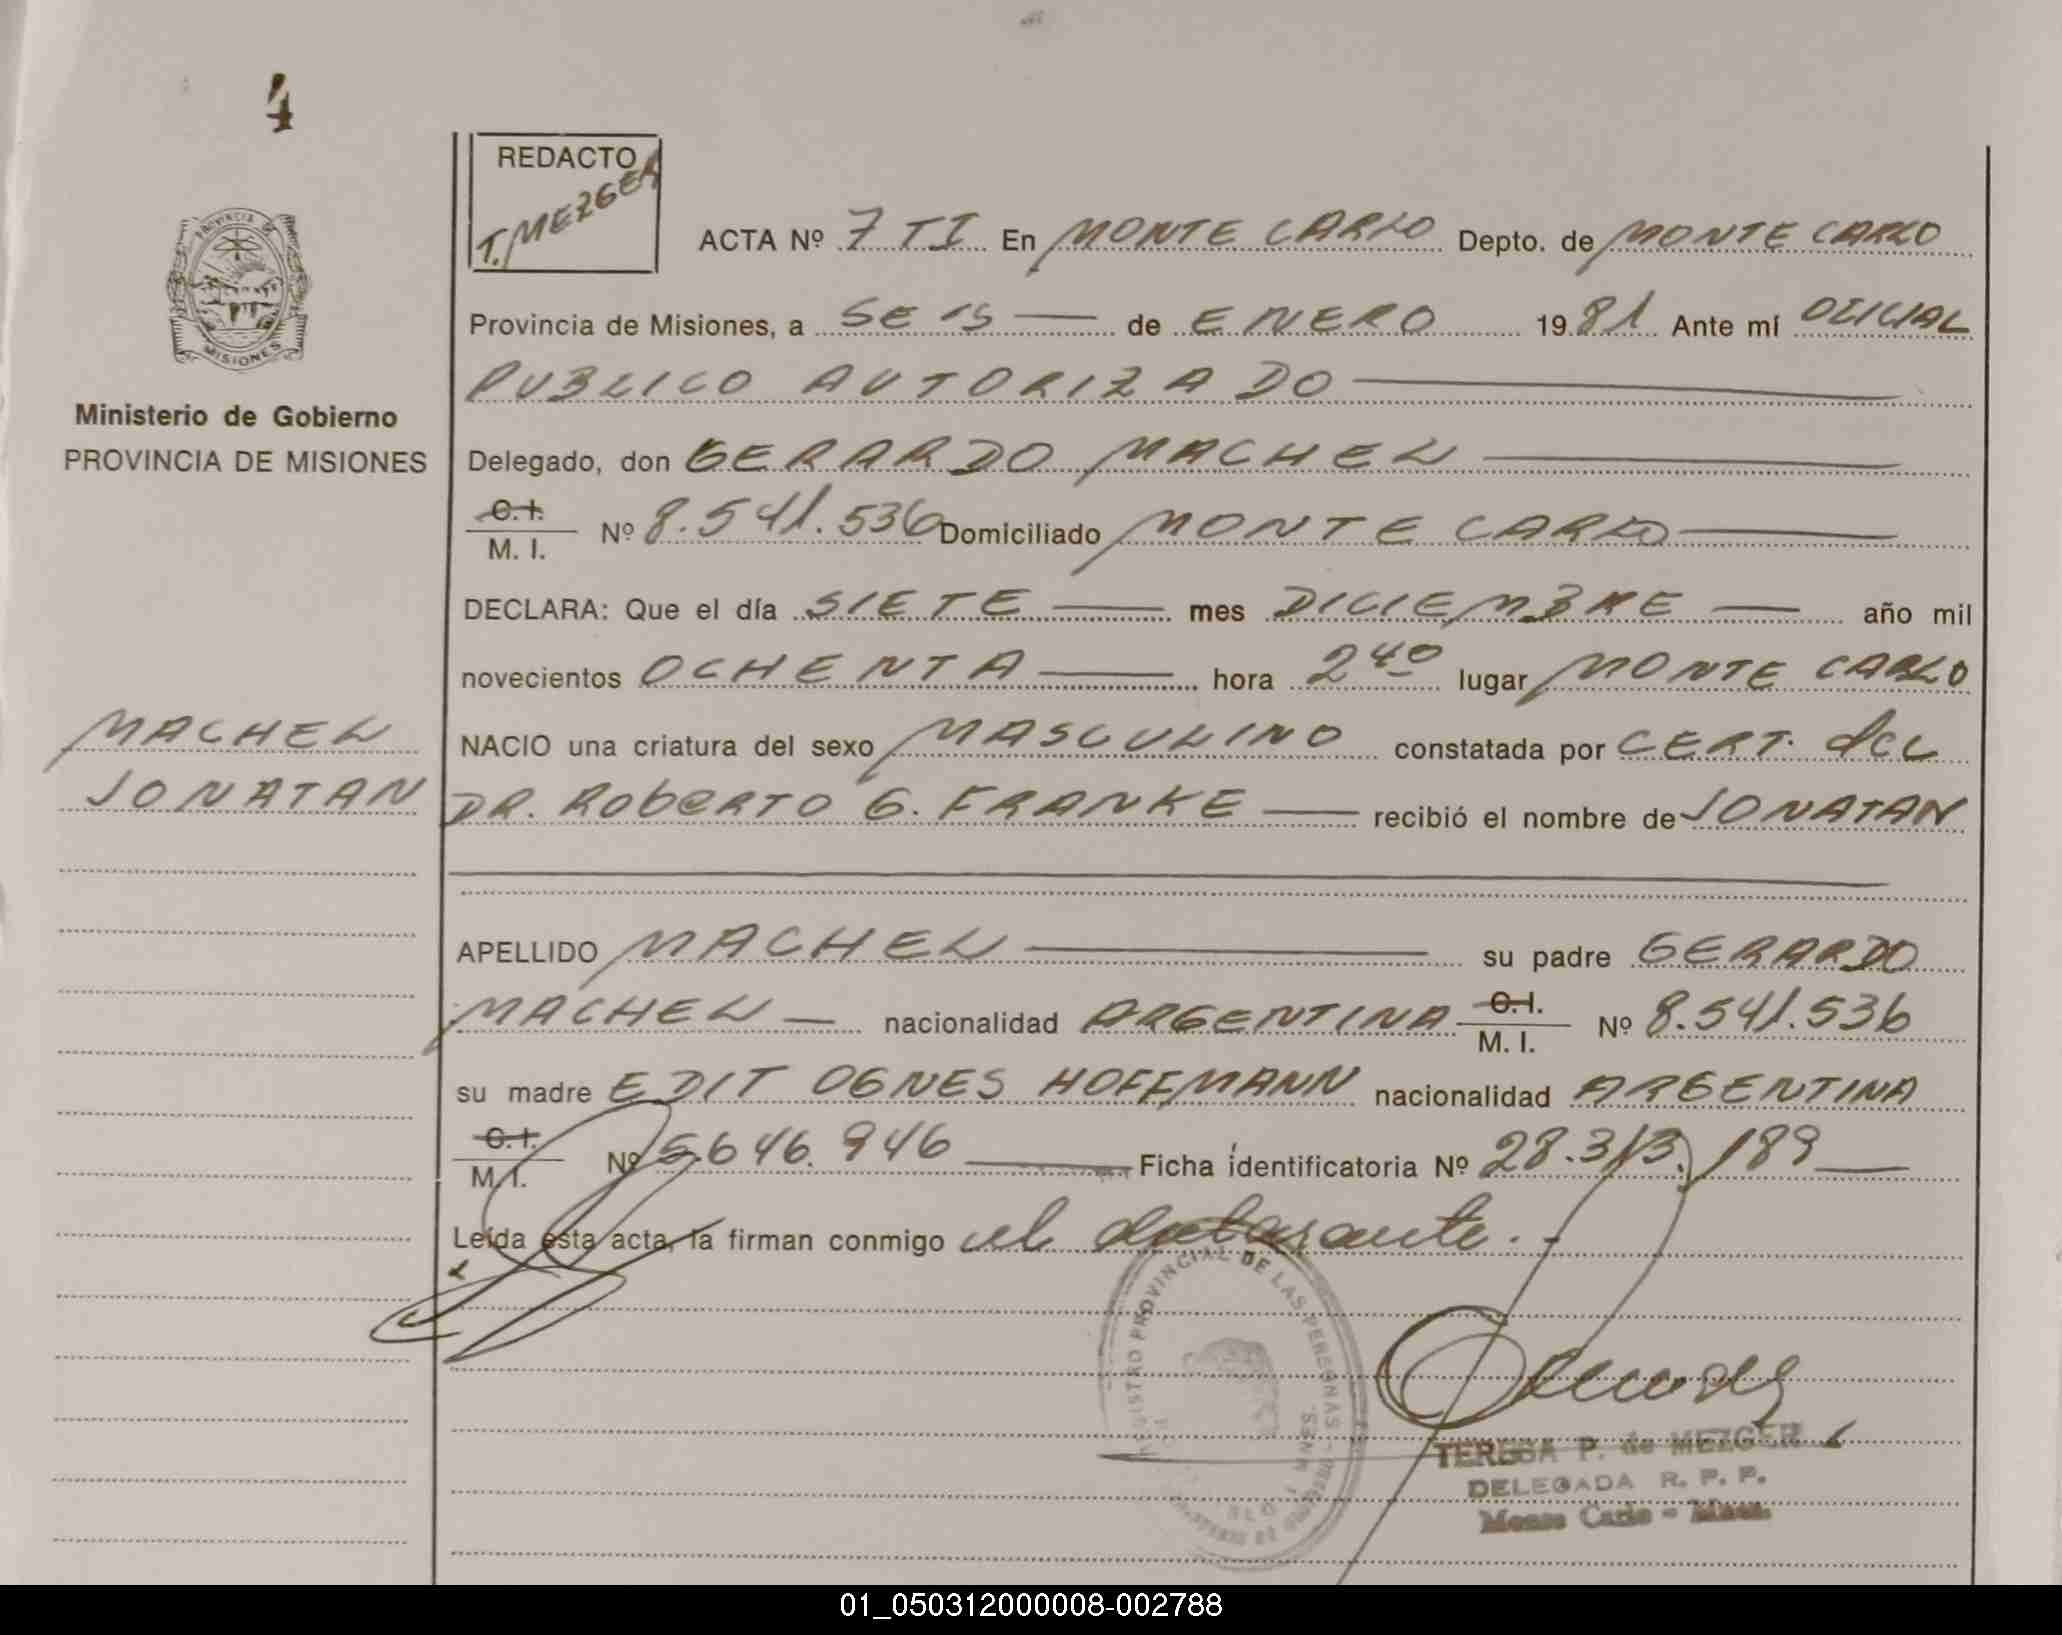 4
REDACTO
T. MEZGER
PROVINCIA DE
MISIONES
Ministerio de Gobierno
PROVINCIA DE MISIONES
MACHEL
JONATAN
ACTA Nº 7 TI En MONTE CARLO Depto. de MONTE CARLO
Provincia de Misiones, a SEIS de ENERO 1981 Ante mí OFICIAL
PUBLICO AUTORIZADO
Delegado, don GERARDO MACHEL
C. I.
M. I. Nº 8.541.536 Domiciliado MONTE CARLO
DECLARA: Que el día SIETE mes DICIEMBRE año mil
novecientos OCHENTA hora 2 40 lugar MONTE CARLO
NACIO una criatura del sexo MASCULINO constatada por CERT. del
DR. ROBERTO G. FRANKE recibió el nombre de JONATAN
APELLIDO MACHEL su padre GERARDO
MACHEL nacionalidad ARGENTINA C. I. M. I. Nº 8.541.536
su madre EDIT OGNES HOFFMANN nacionalidad ARGENTINA
C. I.
M. I. Nº 5.646.946 Ficha identificatoria Nº 28.313.189
Leída esta acta, la firman conmigo el declarante.
REGISTRO PROVINCIAL DE LAS PERSONAS
TERESA P. de MEZGER
DELEGADA R. P. P.
Monte Carlo - Mnes.
01_050312000008-002788